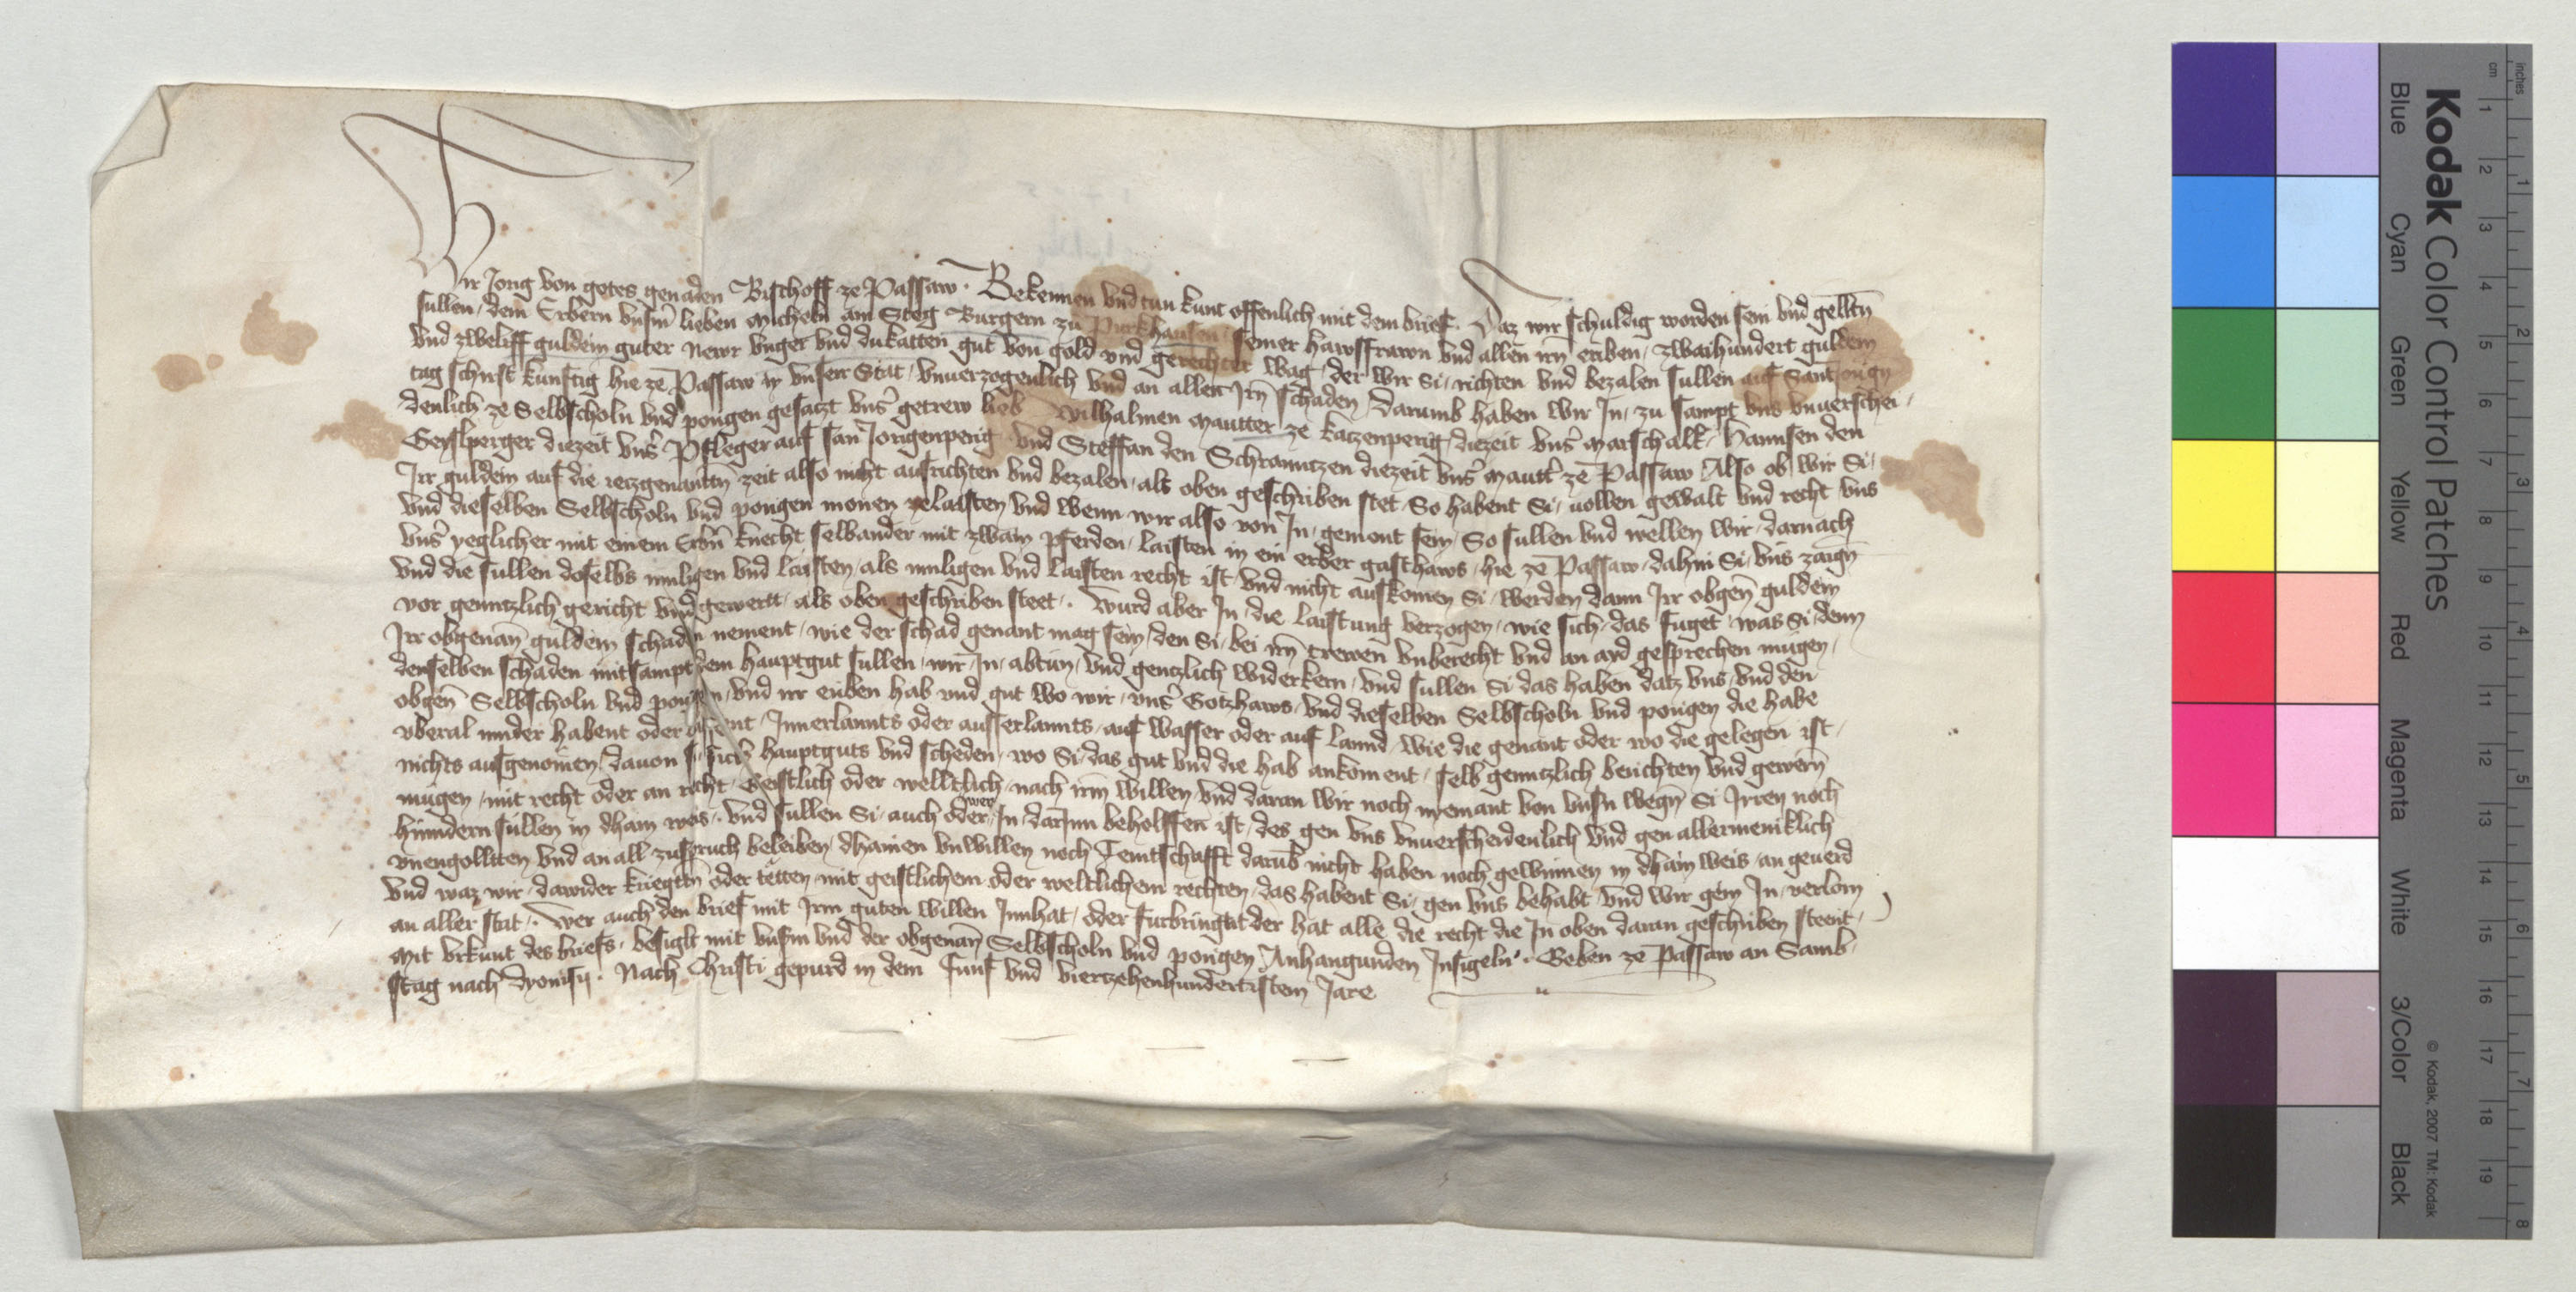 Wir Jorig von gotes genaden Bischoff ze Passaw. Bekennen vnd tun kunt offenlich mit dem brief. Daz wir schuldig worden sein vnd gelltn̄
sullen, dem Erbern vnsm̄ lieben Micheln am Steg Burgern zu Purkhausen, seiner hawsfrawn vnd allen irn̄ eriben, zwaihundert guldein
vnd zweliff guldein guter newr vnger vnd dukatten gut von gold vnd gerechter wag, der wir Si, richten vnd bezalen sullen auf Sant Jorign
tag schirst kunftig hie ze Passaw in vnserr Stat, vnuerzogenlich vnd an allen Irn̄ schaden, Darumb haben wir In, zu sampt vns vnuerschei-
denlich ze Selbscholn vnd porigen gesaczt vns̉ getrew lieb Wilhalmen Mautter ze Katzenperig, diezeit vns̉ Marschalk, Hannsen den
Geyslperger diezeit vns̉ Pfleger auf san̄ Jorigenperig vnd Steffan den Schranntzen diezeit vns̉ Mautt̉ ze Passaw Also ob wir Si,
Irr guldein auf die ietzgenantn̄ zeit also nicht ausrichten vnd bezalen, als oben geschriben stet, So habent Si, vollen gewalt vnd recht vns
vnd dieselben Selbscholn vnd porigen monen ze laisten vnd wenn wir also von In, gemont sein, So sullen vnd wellen wir, darnach
vns̉ yeglicher mit einem Erbn̄ knecht selbander mit zwain pferden, laisten in ein erber gasthaws, hie ze Passaw, dahin Si, vns zaign̄
vnd die sullen doselbs innligen vnd laisten, als innligen vnd laisten recht ist, vnd nicht auskomen Si, werden dann Irr obgen̄ guldein
vor genntzlich gericht vnd gewertt, als oben geschriben steet. Wurd aber In, die laistung verzogen, wie sich, das fuget, was Si, denn
Irr obgenan̄ guldein schaden nement, wie der schad genant mag sein, den Si, bei irn̄ trewen vnberecht vnd an ayd gesprechen mugen,
denselben schaden mitsampt dem hauptgut sullen, wir, In, abtun, vnd gentzlich widerkern, vnd sullen Si das haben datz vns, vnd den
obgen̄ Selbscholn vnd porigen, vnd irr eriben hab vnd gut wo wir, vns̉ Gotzhaws, vnd dieselben Selbscholn vnd porigen die habe
vberal inder habent oder lassent, Innerlannts oder ausserlannts, auf wasser oder auf lannd, wie die genant oder wo die gelegen ist,
nichts ausgenomen, dauon si, sich hauptguts vnd scheden, wo Si, das gut vnd die hab ankoment, selb genntzlich berichten vnd gewern̄
mugen, mit recht oder an recht, Geistlich oder welltlich, nach irm̄ willen, vnd daran wir noch niemant von vnsn̄ wegn̄ Si Irren noch
hinndern sullen in dhain weis, vnd sullen Si, auch oder wer In, darInn beholffen ist, des gen vns vnuerscheidenlich vnd gen allermeniklich
vnengolltten vnd an all zuspruch beleiben, dhainen vnwillen noch veintschafft darūb nicht haben noch gewinnen in dhain weis, an geuerd
Vnd waz wir, dawider kriegtn̄ oder tetten, mit geistlichem oder weltlichem rechten, das habent Si, gen vns behabt, vnd wir gein In, verlorn
an aller stat. Wer auch den brief mit Irm guten willen Innhat, oder furbringet der hat alle die recht die In oben daran geschriben steent,
Mit vrkunt des briefs, besiglt mit vnsm̄ vnd der obgenan̄ Selbscholn vnd porigen Anhangunden Insigeln. Geben ze Passaw an Samb-
stag nach Dyonisij. Nach Christi gepurd in dem Funf vnd viertzehenhundertistem Jare
Kodak Color Control Patches
Blue Cyan Green Yellow Red Magenta White 3/Color Black
© Kodak, 2007 TM: Kodak
cm 1 2 3 4 5 6 7 8 9 10 11 12 13 14 15 16 17 18 19
inches 1 2 3 4 5 6 7 8